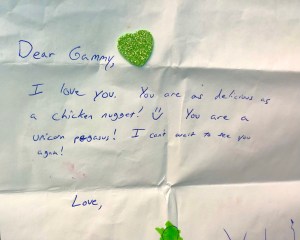 Dear Gammy,
I love you. You are as delicious as
a chicken nugget! You are a
unicorn pegasus! I can't wait to see you
agan!
Love,